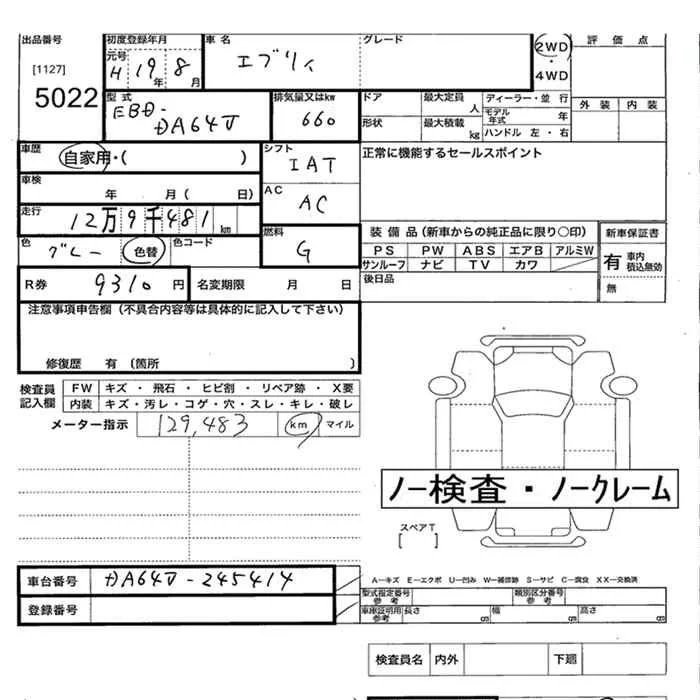 出品番号 初度登録年月 車名 グレード 2WD 評価点
[1127] 元号 H 19年 8月 エブリィ ・
5022 4WD
型式 排気量又はkw ドア 最大定員 人 ディーラー・並行 外装 内装
EBD- 660 モデル年式 年
DA64V 形状 最大積載 kg ハンドル 左・右
車歴 自家用・( ) シフト 正常に機能するセールスポイント
IAT
車検 年 月( 日) AC
AC
走行 12万9千481 km
色 グレー 色替 色コード 燃料 G 装備品(新車からの純正品に限り〇印) 新車保証書
PS PW ABS エアB アルミW 有 車内積込無効
サンルーフ ナビ TV カワ
R券 9310円 名変期限 月 日 後日品 無
注意事項申告欄(不具合内容等は具体的に記入して下さい)
修復歴 有(箇所 )
検査員記入欄 FW キズ・飛石・ヒビ割・リペア跡・X要
内装 キズ・汚レ・コゲ・穴・スレ・キレ・破レ
メーター指示 129,483 km マイル
ノー検査・ノークレーム
スペアT
[ ]
車台番号 DA64V-245414 A−キズ E−エクボ U−凹み W−補修跡 S−サビ C−腐食 XX−交換済
型式指定番号 参考 類別区分番号 参考
登録番号 車庫証明用参考 長さ cm 幅 cm 高さ cm
検査員名 内外 下廻